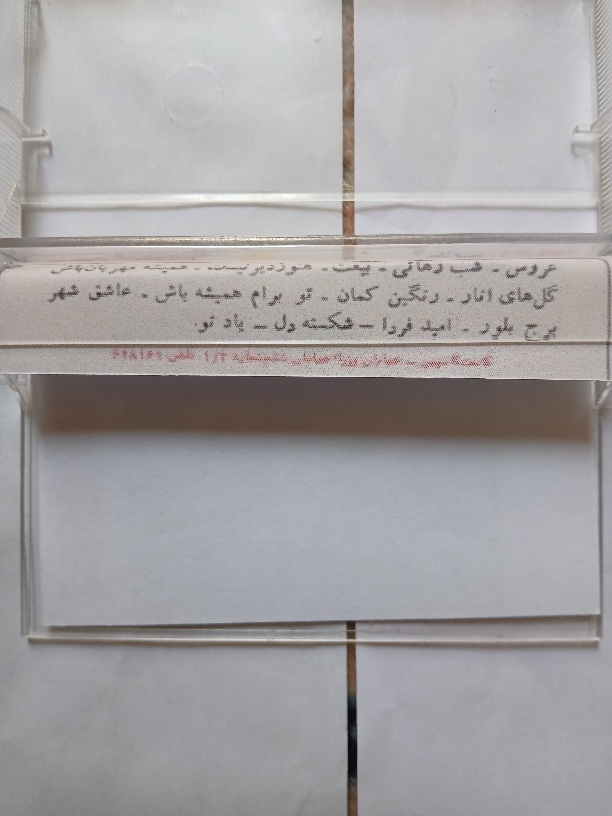 عروس - شب رهائی - بیعت - هنوز دیر نیست - همیشه مهربان باش
گل‌های انار - رنگین کمان - تو برام همیشه باش - عاشق شهر
برج بلور - امید فردا - شکسته دل - یاد تو.
خیابان تلفن